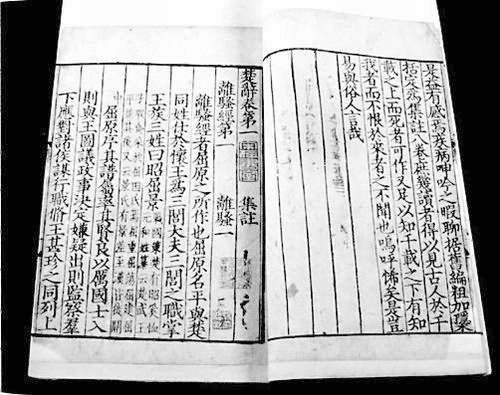 是益有感焉疾病呻吟之暇聊據舊編粗加檃
括定為集註八卷庶幾讀者得以見古人於千
載之上而死者可作又足以知千載之下有知
我者而不恨於來者之不聞也嗚呼悕矣是豈
易與俗人言哉
楚辭卷第一 集註
離騷經第一 離騷一
離騷經者屈原之所作也屈原名平與楚
同姓仕於懷王為三閭大夫三閭之職掌
王族三姓曰昭屈景
屈原序其譜屬率其賢良以厲國士入
則與王圖議政事決定嫌疑出則監察羣
下應對諸侯謀行職脩王甚珍之同列上